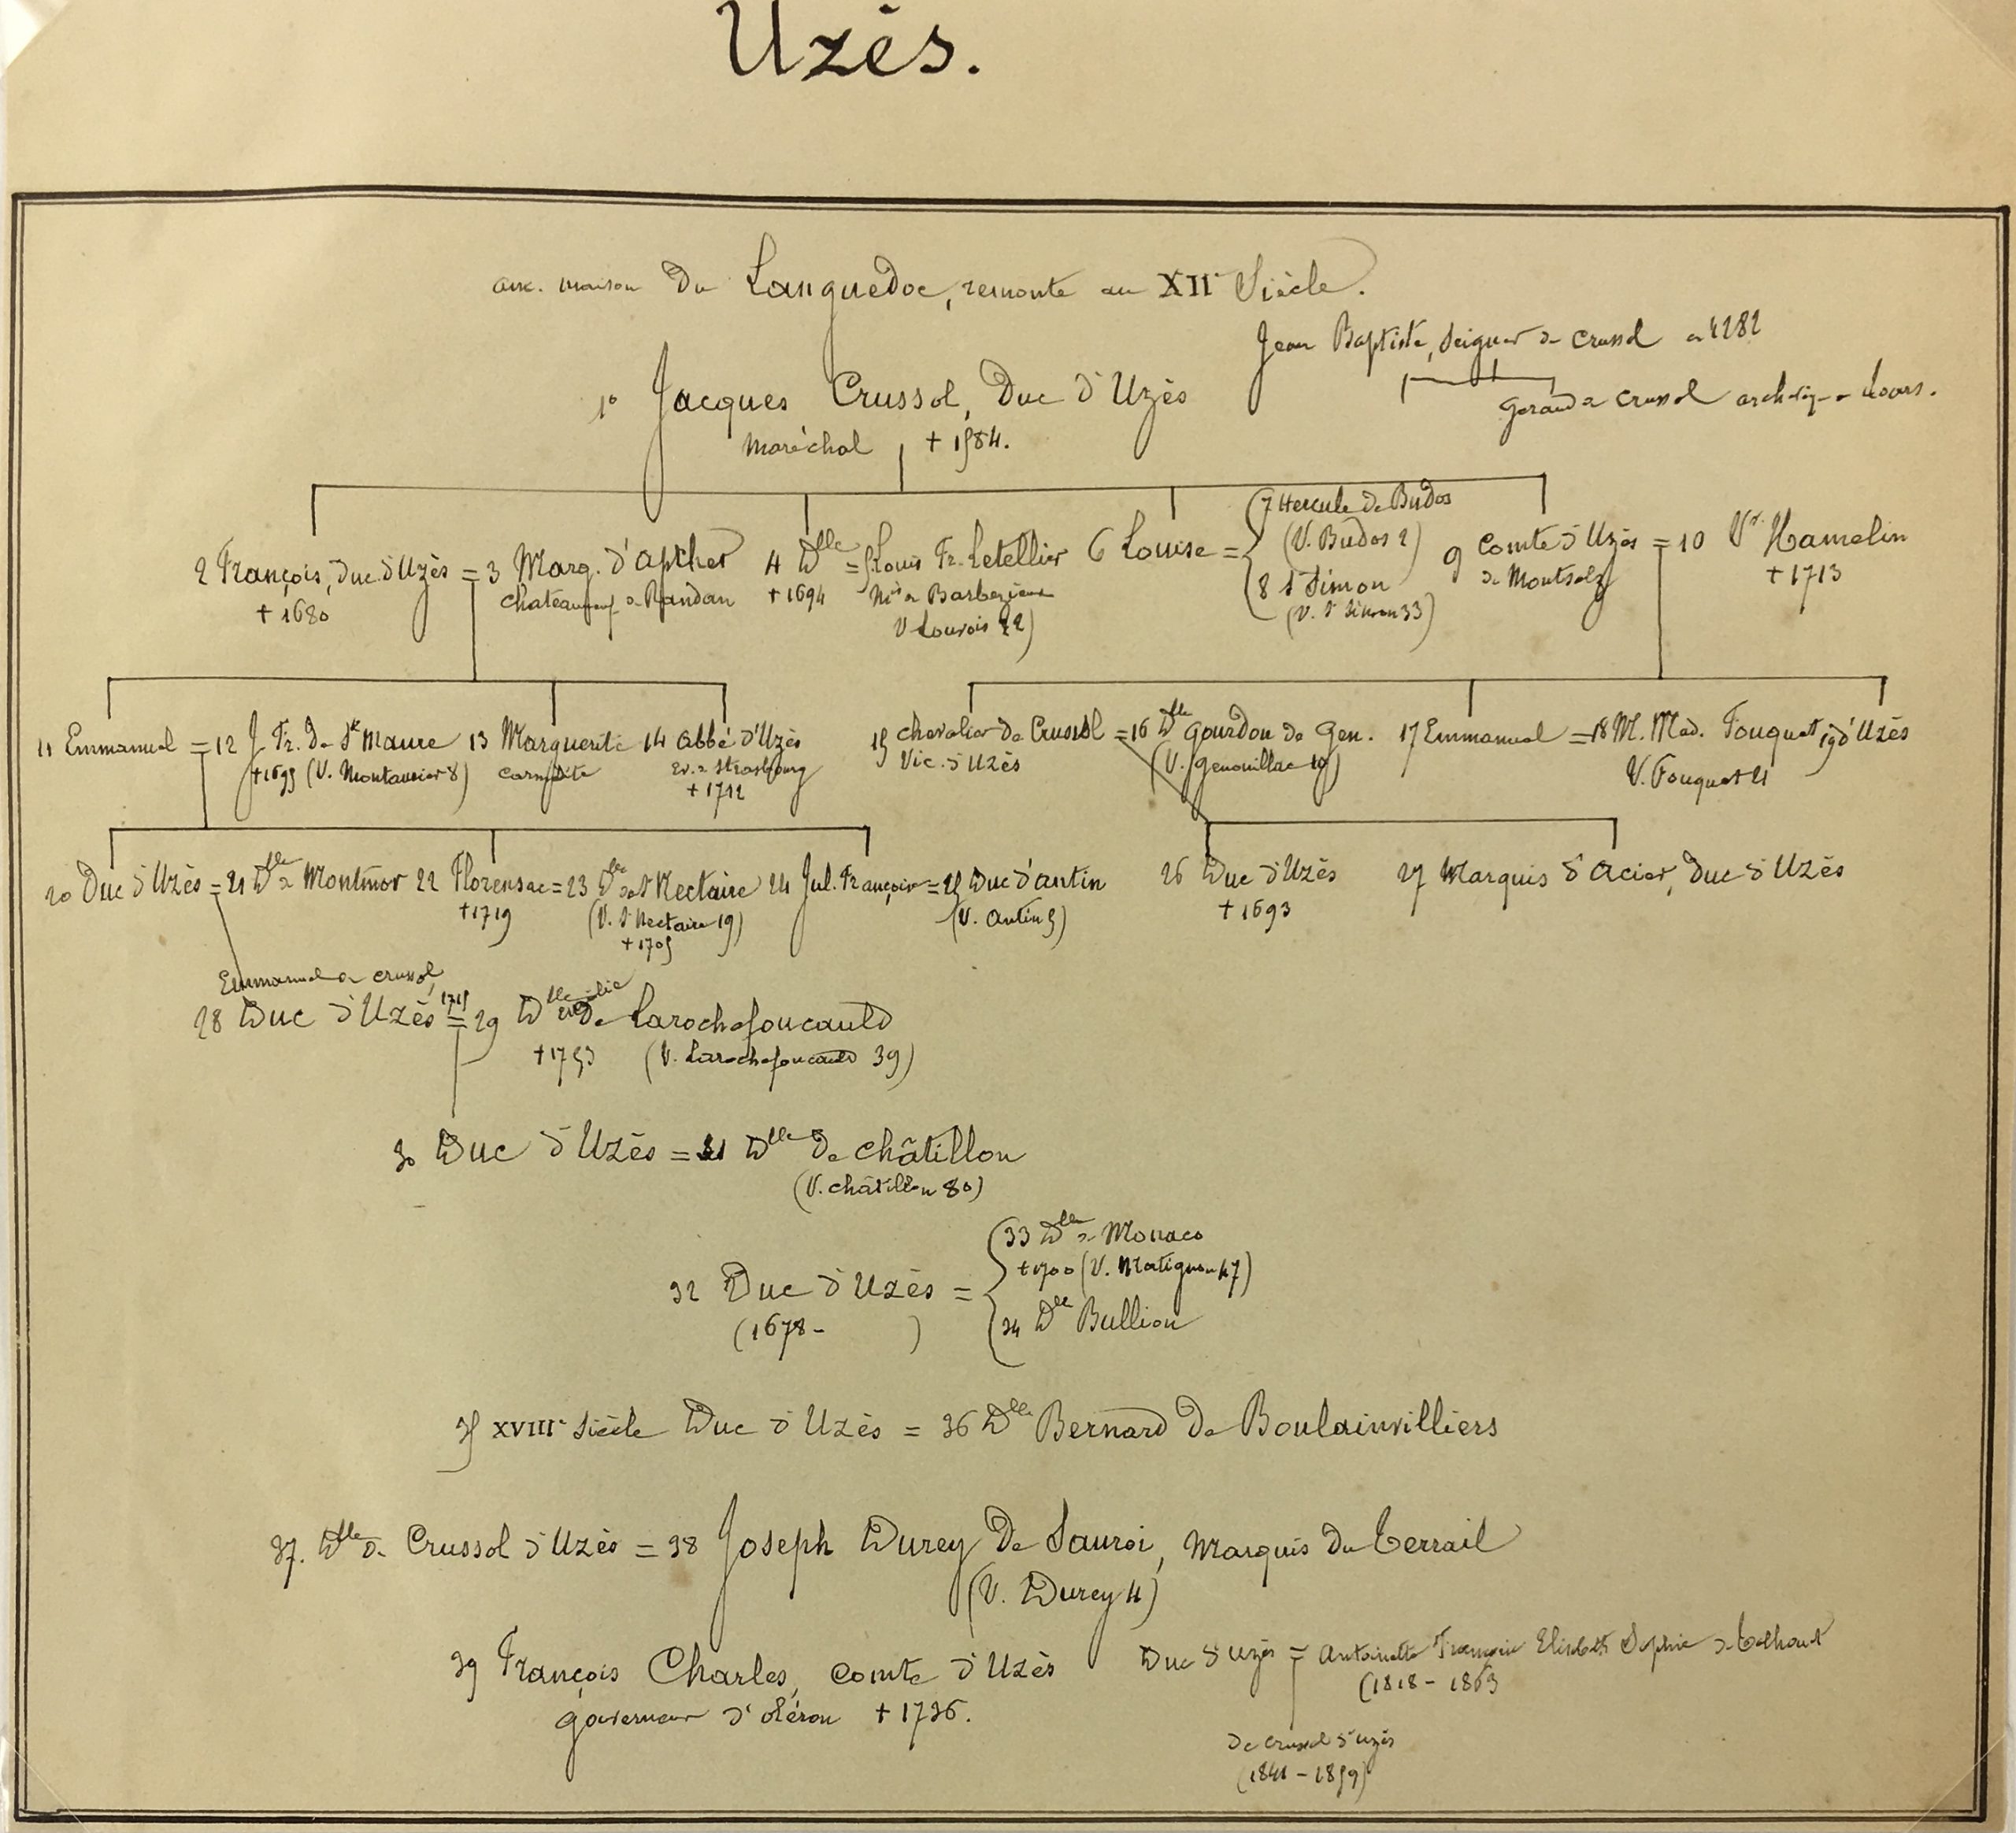 Uzès.
anc. maison du Languedoc, remonte au XIIe Siècle.
Jean Baptiste, Seigneur de Crussol en 1282
Gerand de Crussol archevêq. de Tours.
1° Jacques Crussol, Duc d'Uzès
Maréchal + 1584.
2 François, Duc d'Uzès = 3 Marg. d'Apcher 4 Dlle = 5 Louis Fr. Letellier 6 Louise = 7 Hercule de Budos 9 Comte d'Uzès = 10 Vve Hamelin
+ 1680 Chateauneuf de Randan + 1694 Mis de Barbezieux (V. Budos 2) de Montsalz + 1713
V Louvois 22) 8 St Simon
(V. St Simon 33)
11 Emmanuel = 12 J Fr. de Ste Maure 13 Marguerite 14 Abbé d'Uzès 15 Chevalier de Crussol = 16 Dlle Gourdon de Gen. 17 Emmanuel = 18 M. Mad. Fouquet 19 d'Uzès
+ 1695 (V. Montausier 8) Carmélite Ev. de Strasbourg Vic. d'Uzès (V. Genouillac 19) V. Fouquet 21
+ 1712
20 Duc d'Uzès = 21 Dlle de Montmor 22 Florensac = 23 Dlle de St Nectaire 24 Jul. Françoise = 25 Duc d'Antin 26 Duc d'Uzès 27 Marquis d'Acier, Duc d'Uzès
+ 1719 (V. St Nectaire 19) (V. Antin 5) + 1693
+ 1705
Emmanuel de Crussol,
28 Duc d'Uzès 1715 = 29 Dlle de Larochefoucauld
+ 1753 (V. Larochefoucauld 39)
30 Duc d'Uzès = 31 Dlle de Châtillon
(V. Châtillon 80)
33 Dlle de Monaco
+ 1700 (V. Matignon 47)
32 Duc d'Uzès =
(1678 - ) 34 Dlle Bullion
35 XVIIIe Siècle Duc d'Uzès = 36 Dlle Bernard de Boulainvilliers
37. Dlle de Crussol d'Uzès = 38 Joseph Durey de Sauroi, Marquis du Terrail
(V. Durey 4)
39 François Charles, Comte d'Uzès
Gouverneur d'Oléron + 1736.
Duc d'Uzès = Antoinette Françoise Elisabeth Sophie de Talhouet
(1818 - 1863
de Crussol d'Uzès
(1841 - 1859)